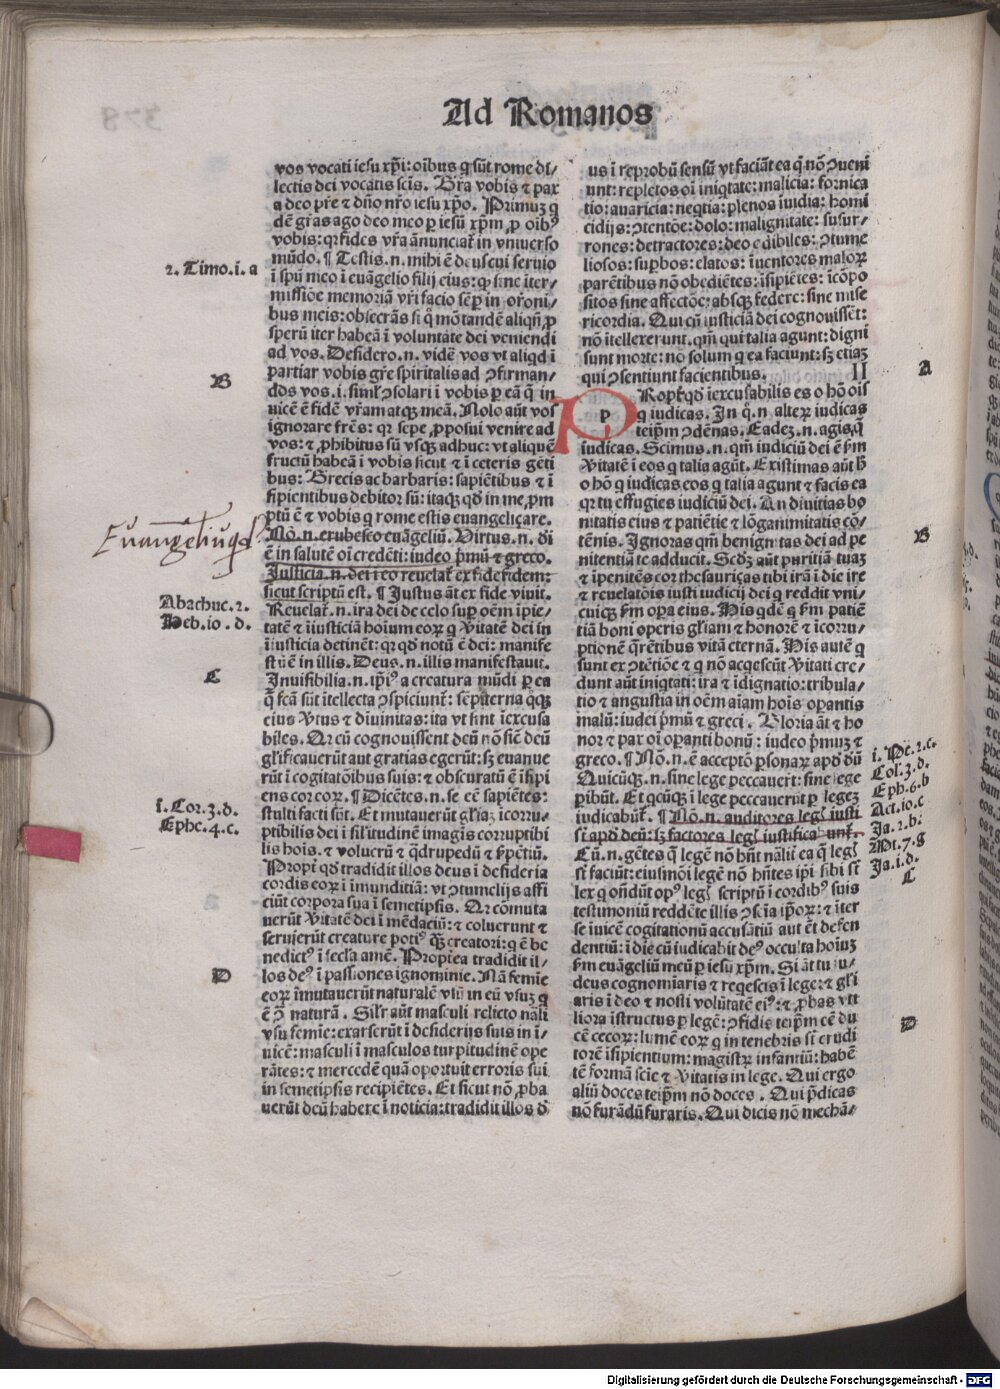 Ad Romanos
vos vocati iesu xp̄i: oībus q sūt rome di/
lectis dei vocatis scīs. Gr̄a vobis ⁊ pax
a deo pr̄e ⁊ dño nr̄o iesu xp̄o. Primuʒ q
dē gr̄as ago deo meo ꝑ iesū xp̄m ꝓ oībꝰ
vobis: qꝛ fides vr̄a ānunciat̄ in vniuerso
mūdo. ¶ Testis .n. mihi ē deus cui seruio
ī spū meo ī euāgelio filij eius: ꝙ sine iter/
missiōe memoriā vr̄i facio sēꝑ in or̄oni/
bus meis: obsecrās si q̊ mō tandē aliqñ ꝓ
sperū iter habeā ī voluntate dei veniendi
ad vos. Desidero .n. vidē vos vt aliqd ī
partiar vobis gr̄e spiritalis ad ꝯfirman/
dos vos .i. simł ꝯsolari ī vobis ꝑ eā q̄ in
uicē ē fidē vr̄am atqꝫ meā. Nolo aūt vos
ignorare fr̄es: qꝛ sepe ꝓposui venire ad
vos: ⁊ ꝓhibitus sū vsqꝫ adhuc: vt aliquē
fructū habeā ī vobis sicut ⁊ ī ceteris gēti
bus. Grecis ac barbaris: sapiētibus ⁊ ī
sipientibus debitor sū: itaqꝫ qd̄ in me, ꝓm
ptū ē ⁊ vobis q rome estis euangeliçare.
Nō .n. erubesco euāgeliū. Virtus .n. di
ē in salutē oī credēti: iudeo p̄mū ⁊ greco.
Justicia .n. dei ī eo reuelat̄ ex fide ī fidem:
sicut scriptū est. ¶ Justus āt ex fide viuit.
Reuelat̄ .n. ira dei de celo suꝑ oēm īpie/
tatē ⁊ īiusticiā hoīum eoꝝ q v̄itatē dei in
īiusticia detinēt: qꝛ qd̄ notū ē dei: manife
stū ē in illis. Deus .n. illis manifestauit.
Inuisibilia .n. ip̄iꝰ a creatura mūdi ꝑ ea
q̄ fcā sūt ītellecta ꝯspiciunt̄: sēpiterna qꝫ
eius v̄tus ⁊ diuinitas: ita vt sint īexcusa
biles. Qꝛ cū cognouissent deū nō sic̄ deū
gl̄ificauerūt aut gratias egerūt: sꝫ euanue
rūt ī cogitatōibus suis: ⁊ obscuratū ē īsipi
ens cor eoꝝ. ¶ Dicētes .n. se eē sapiētes:
stulti facti sūt. Et mutauerūt gl̄iaꝫ īcorru/
ptibilis dei ī sil̄itudinē imagīs corruptibi
lis hoīs. ⁊ volucrū ⁊ q̄drupedū ⁊ ẜpētiū.
Propt̄ qd̄ tradidit illos deus ī desideria
cordis eoꝝ ī īmunditiā: vt ꝯtumelijs affi
ciūt corpora sua ī semetipsis. Qꝛ cōmuta
uerūt v̄itatē dei ī mēdaciū: ⁊ coluerunt ⁊
seruierūt creature potiꝰ q̄ꝫ creatori: q ē be
nedictꝰ ī secl̄a amē. Propt̄ea tradidit il/
los deꝰ ī passiones ignominie. Nā femie
eoꝝ īmutauerūt naturalē vsū in eū vsuꝫ q
ē ꝯ̄ naturā. Sil̄r aūt masculi relicto nāli
vsu femīe: exarserūt ī desiderijs suis in ī/
uicē: masculi ī masculos turpitudinē ope
rātes: ⁊ mercedē quā oportuit erroris sui
in semetipsis recipiētes. Et sicut nō ꝓba
uerūt deū habere ī noticia: tradidit illos d̄
us ī reprobū sensū vt faciāt ea q̄ nō ꝯueni
unt: repletos oī iniqtate: malicia: fornica
tio: auaricia: neqtia: plenos īuidia: homi
cidijs: ꝯtentōe: dolo: malignitate: susur/
rones: detractores: deo odibiles: ꝯtume
liosos: suꝑbos: elatos: īuentores maloꝝ
parētibus nō obediētes: īsipiētes: īcōpo
sitos sine affectōe: absqꝫ federe: sine mise
ricordia. Qui cū iusticiā dei cognouissēt:
nō ītellexerunt. qm̄ qui talia agunt: digni
sunt morte: nō solum q ea faciunt: sꝫ etiaꝫ
qui ꝯsentiunt facientibus. II
PRopt̄ qd̄ īexcusabilis es o hō oīs
q iudicas. In q̊ .n. alteꝝ iudicas
teip̄m ꝯdēnas. Eadeꝫ .n. agis q̄
iudicas. Scimus .n. qm̄ iudiciū dei ē ẜm
v̄itatē ī eos q talia agūt. Existimas aūt h̄
o hō q iudicas eos q talia agunt ⁊ facis ea
qꝛ tu effugies iudiciū dei. An diuitias bo
nitatis eius ⁊ patiētie ⁊ lōganimitatis cō/
tēnis. Ignoras qm̄ benignitas dei ad pe
nitentiā te adducit. Scdꝫ aūt duritiā tuaꝫ
⁊ īpenitēs cor thesauriças tibi irā ī die ire
⁊ reuelatōis iusti iudicij dei q reddit vni/
cuiqꝫ ẜm oꝑa eius. His qdē q ẜm patiē
tiā boni operis gl̄iam ⁊ honorē ⁊ īcorru/
ptionē q̄rētibus vitā eternā. His autē q
sunt ex ꝯtētiōe ⁊ q nō acqescūt v̄itati cre/
dunt aūt iniqtati: ira ⁊ īdignatio: tribula/
tio ⁊ angustia in oēm aīam hoīs oꝑantis
malū: iudei p̄mū ⁊ greci. Gloria āt ⁊ ho
nor ⁊ pax oī oꝑanti bonū: iudeo p̄muꝫ ⁊
greco. ¶ Nō .n. ē acceptō ꝑsonaꝝ apd̄ dūꝫ
Quicūqꝫ .n. sine lege peccauert̄: sine lege
ꝑibūt. Et qcūqꝫ ī lege peccauerūt ꝑ legeꝫ
iudicabūt̄. ¶ Nō .n. auditores leg̃ iusti
st̄ apd̄ deū: sꝫ factores leg̃ iustificabunt̄.
Cū .n. gētes q̄ legē nō hn̄t nālit̄ ea q̄ leg̃
st̄ faciūt: eiusmōi legē nō hn̄tes ip̄i sibi st̄
lex q oñdūt opꝰ leg̃ scriptū ī cordibꝰ suis
testimoniū reddēte illis ꝯscīa ip̄oꝝ: ⁊ īter
se īuicē cogitationū accusātiū aut ēt defen
dentiū: ī die cū iudicabit deꝰ occulta hoīuꝫ
ẜm euāgeliū meū ꝑ iesū xp̄m. Si āt tu iu/
deus cognomīaris ⁊ reqescis ī lege: ⁊ gl̄i
aris ī deo ⁊ nosti volūtatē eiꝰ: ⁊ ꝓbas vti
liora īstructus ꝑ legē: ꝯfidis teip̄m eē du
cē cecoꝝ: lumē eoꝝ q in tenebris st̄ erudi
torē īsipientium: magistꝝ infantiū: habē
tē formā scīe ⁊ v̄itatis in lege. Qui ergo
aliū doces teip̄m nō doces. Qui p̄dicas
nō furādū furaris. Qui dicis nō mechā/
2. Timo. i. a
B
Euangeliū qd
Abachuc. 2.
Heb. 10. d.
C
i. Cor. 3. d.
Ephe. 4. c.
D
A
B
i. Pe. 2. c.
Col. 3. d.
Eph. 6. b
Act. 10. c
Ja. 2. b.
Mt. 7. g
Ja. i. d.
C
D
Digitalisierung gefördert durch die Deutsche Forschungsgemeinschaft - DFG